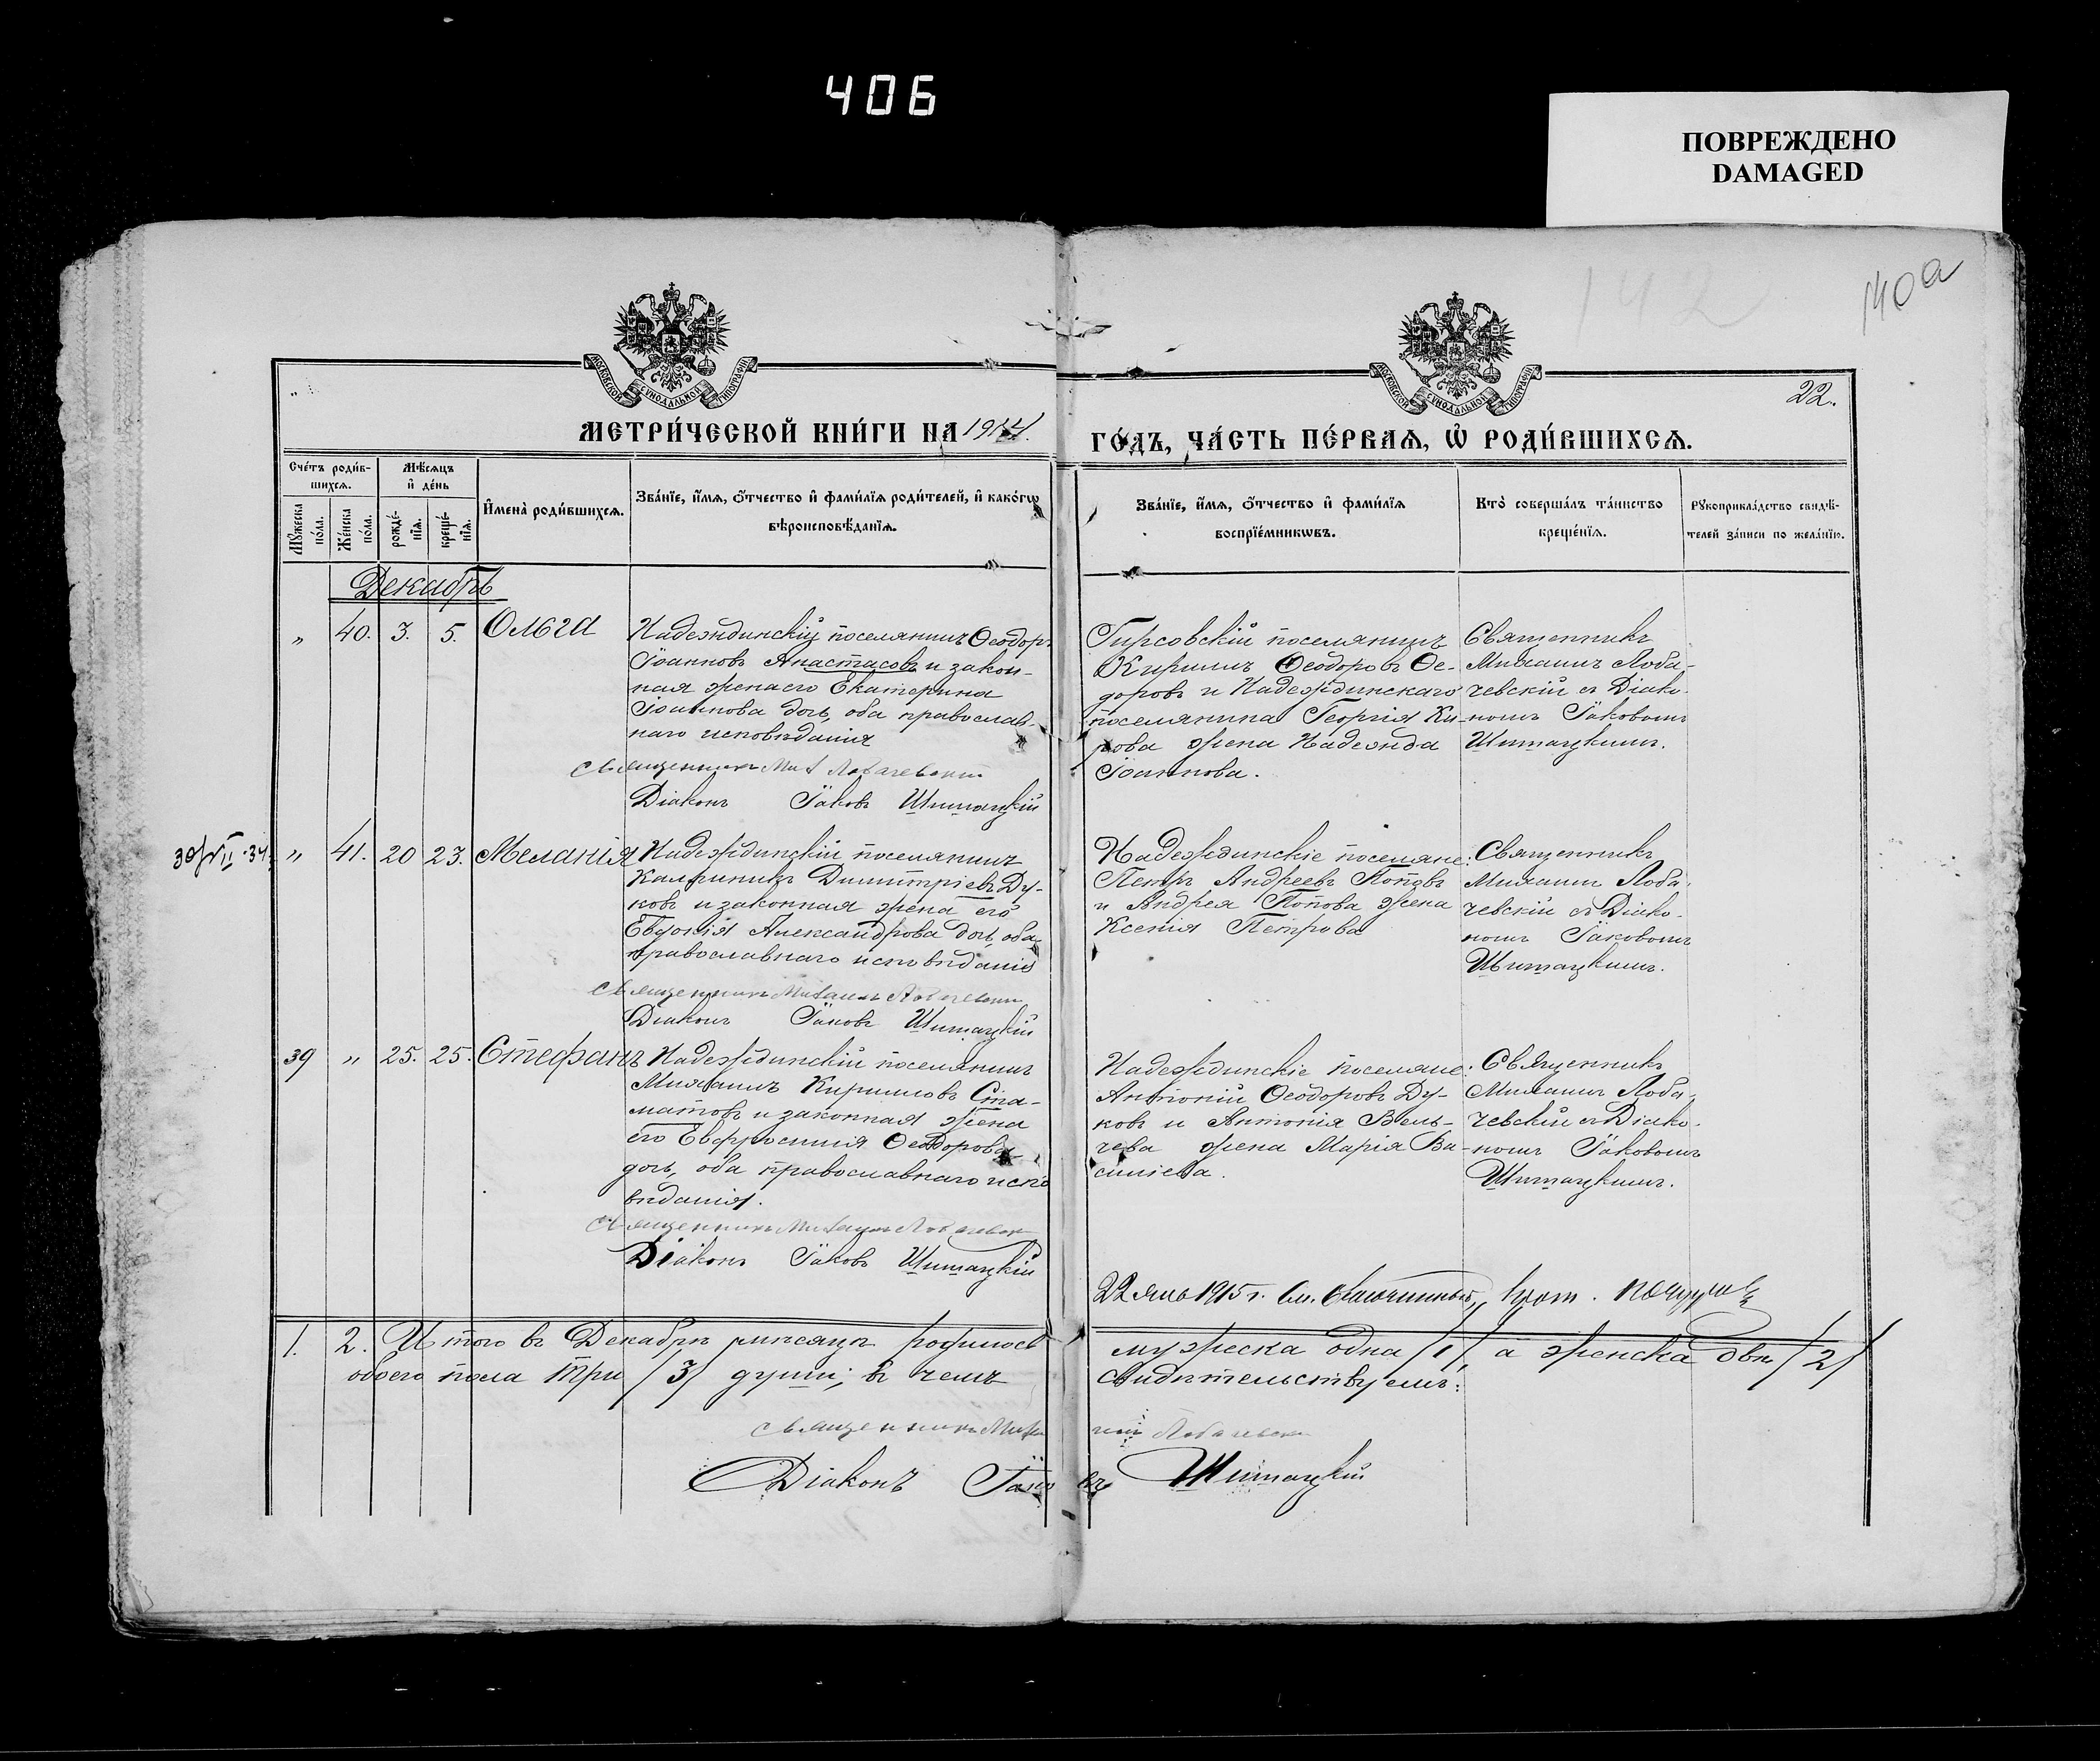 406
ПОВРЕЖДЕНО
DAMAGED
142
140а
22.
МОСКОВСКОЙ СѴНОДАЛЬНОЙ ТИПОГРАФІИ
МОСКОВСКОЙ СѴНОДАЛЬНОЙ ТИПОГРАФІИ
МЕТРИ́ЧЕСКОЙ КНИ́ГИ НА 1914.
ГО́ДЪ, ЧА́СТЬ ПЕ́РВАѦ, Ѡ҆ РОДИ́ВШИХСѦ.
Сче́тъ роди́в-
шихсѧ.
Мѣ́сѧцъ
и҆ де́нь
Мꙋ́жеска
по́ла.
Же́нска
по́ла.
рожде́-
нїѧ.
креще́-
нїѧ.
И҆мена̀ роди́вшихсѧ.
Зва́нїе, и҆́мѧ, ѻ҆́тчество и҆ фами́лїѧ роди́телей, и҆ како́гѡ
вѣроисповѣ́данїѧ.
Зва́нїе, и҆́мѧ, ѻ҆́тчество и҆ фами́лїѧ
воспрїе́мникѡвъ.
Кто̀ соверша́лъ та́инство
креще́нїѧ.
Рꙋкоприкла́дство свидѣ́-
телей за́писи по жела́нїю.
Декабрь
„ 40. 3. 5. Ольга
Надеждинскій поселянинъ Ѳеодоръ
Іоанновъ Анастасовъ и закон-
ная жена его Екатерина
Іоаннова дочь, оба православ-
наго исповѣданія
Священникъ Мих Лобачевскій
Діаконъ Іаковъ Шишацкій
Гирсовскій поселянинъ
Кириллъ Ѳеодоровъ Ѳе-
доровъ и Надеждинскаго
поселянина Георгія Ки-
рова жена Надежда
Іоаннова.
Священникъ
Михаилъ Лоба-
чевскій съ Діако-
номъ Іаковомъ
Шишацкимъ.
„ 41. 20 23. Меланія
Надеждинскій поселянинъ
Каллиникъ Димитріевъ Ду-
ковъ и законная жена его
Евдокія Александрова дочь, оба
православнаго исповѣданія
Священникъ Михаилъ Лобачевскій
Діаконъ Іаковъ Шишацкій
Надеждинскіе поселяне:
Петръ Андреевъ Поповъ
и Андрея Попова жена
Ксенія Петрова
Священникъ
Михаилъ Лоба-
чевскій съ Діако-
номъ Іаковомъ
Шишацкимъ.
39 „ 25. 25. Стефанъ
Надеждинскій поселянинъ
Михаилъ Кирилловъ Ста-
матовъ и законная жена
его Евфросинія Ѳеодорова
дочь, оба православнаго испо
вѣданія.
Священникъ Михаилъ Лобачевск
Діаконъ Іаковъ Шишацкій
Надеждинскіе поселяне:
Антоній Ѳеодоровъ Ду-
ковъ и Антонія Вель-
чева жена Марія Ва-
сильева.
Священникъ
Михаилъ Лоба-
чевскій съ Діако-
номъ Іаковомъ
Шишацкимъ.
22 янв 1915 г. Благочинный, прот.
1. 2. Итого въ Декабрѣ мѣсяцѣ родилось
мужеска одна /1/, а женска двѣ /2/
обоего пола три /3/ души; въ чемъ
свидѣтельствуемъ:
Священникъ Михаилъ Лобачевск
Діаконъ Іаковъ Шишацкій